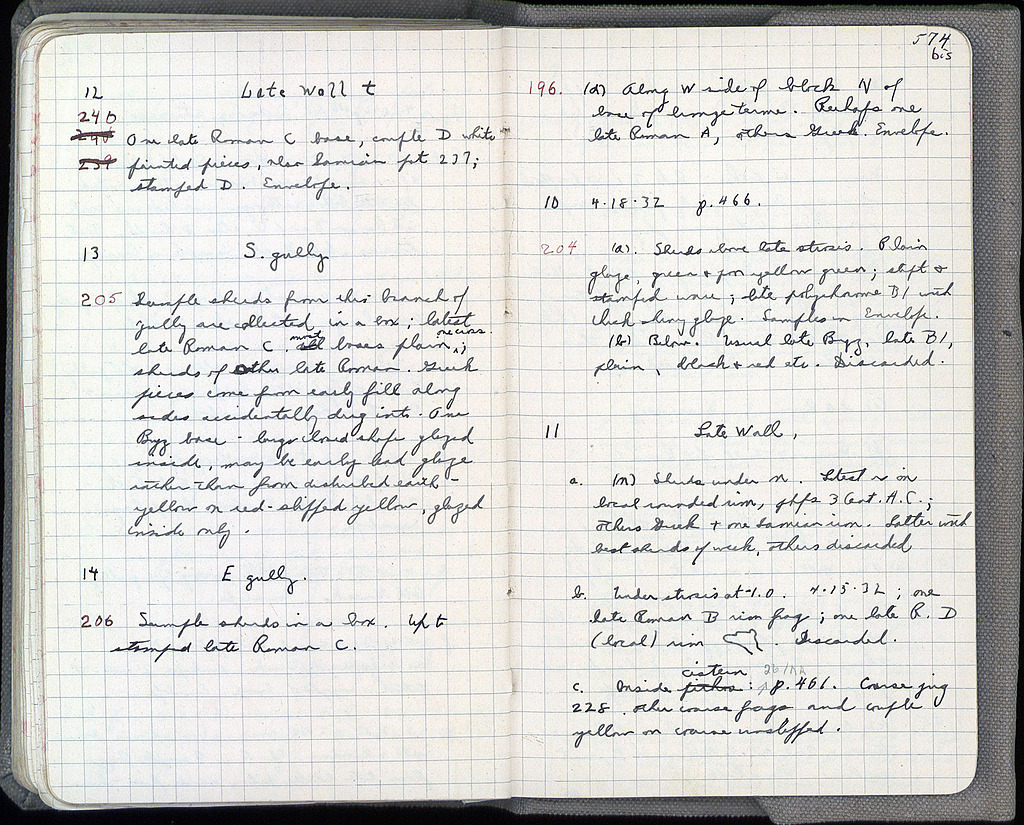 12 Late Wall t
240
240 One late Roman C base, couple D white
239 painted pieces, also Samian pt 237;
stamped D. Envelope.
13 S. gully
205 Sample sherds from this branch of
gully are collected in a box; latest
late Roman C. all most bases plain, one cross;
sherds of other late Roman. Greek
pieces come from early fill along
sides accidentally dug into. One
Byz base - large closed shape glazed
inside, may be early lead glaze
rather than from disturbed earth -
yellow on red-slipped yellow, glazed
inside only.
14 E gully.
206 Sample sherds in a box. Up to
stamped late Roman C.
574
bis
196. (d) Along W side of block N of
base of Perhaps one
late Roman A, others Greek. Envelope.
10 4-18-32 p. 466.
204 (a). Sherds above late strosis. Plain
glaze, green & yellow green; slipt &
stamped ware; late polychrome B1 with
thick shiny glaze. Samples in Envelope.
(b) Below. Usual late Byz, late B1,
plain, black & red etc. Discarded.
11 Late Wall,
a. (m) Sherds under m. Latest is on
local rounded rim, phps 3 Cent. A.C.;
others Greek + one Samian rim. Latter with
best sherds of week, others discarded
b. Under strosis at -1.0. 4-15-32; one
late Roman B rim frag; one late R. D
(local) rim . Discarded.
cistern
c. Inside pithos: p. 461. Coarse jug
228. other coarse frags and couple
yellow on coarse unslipped.